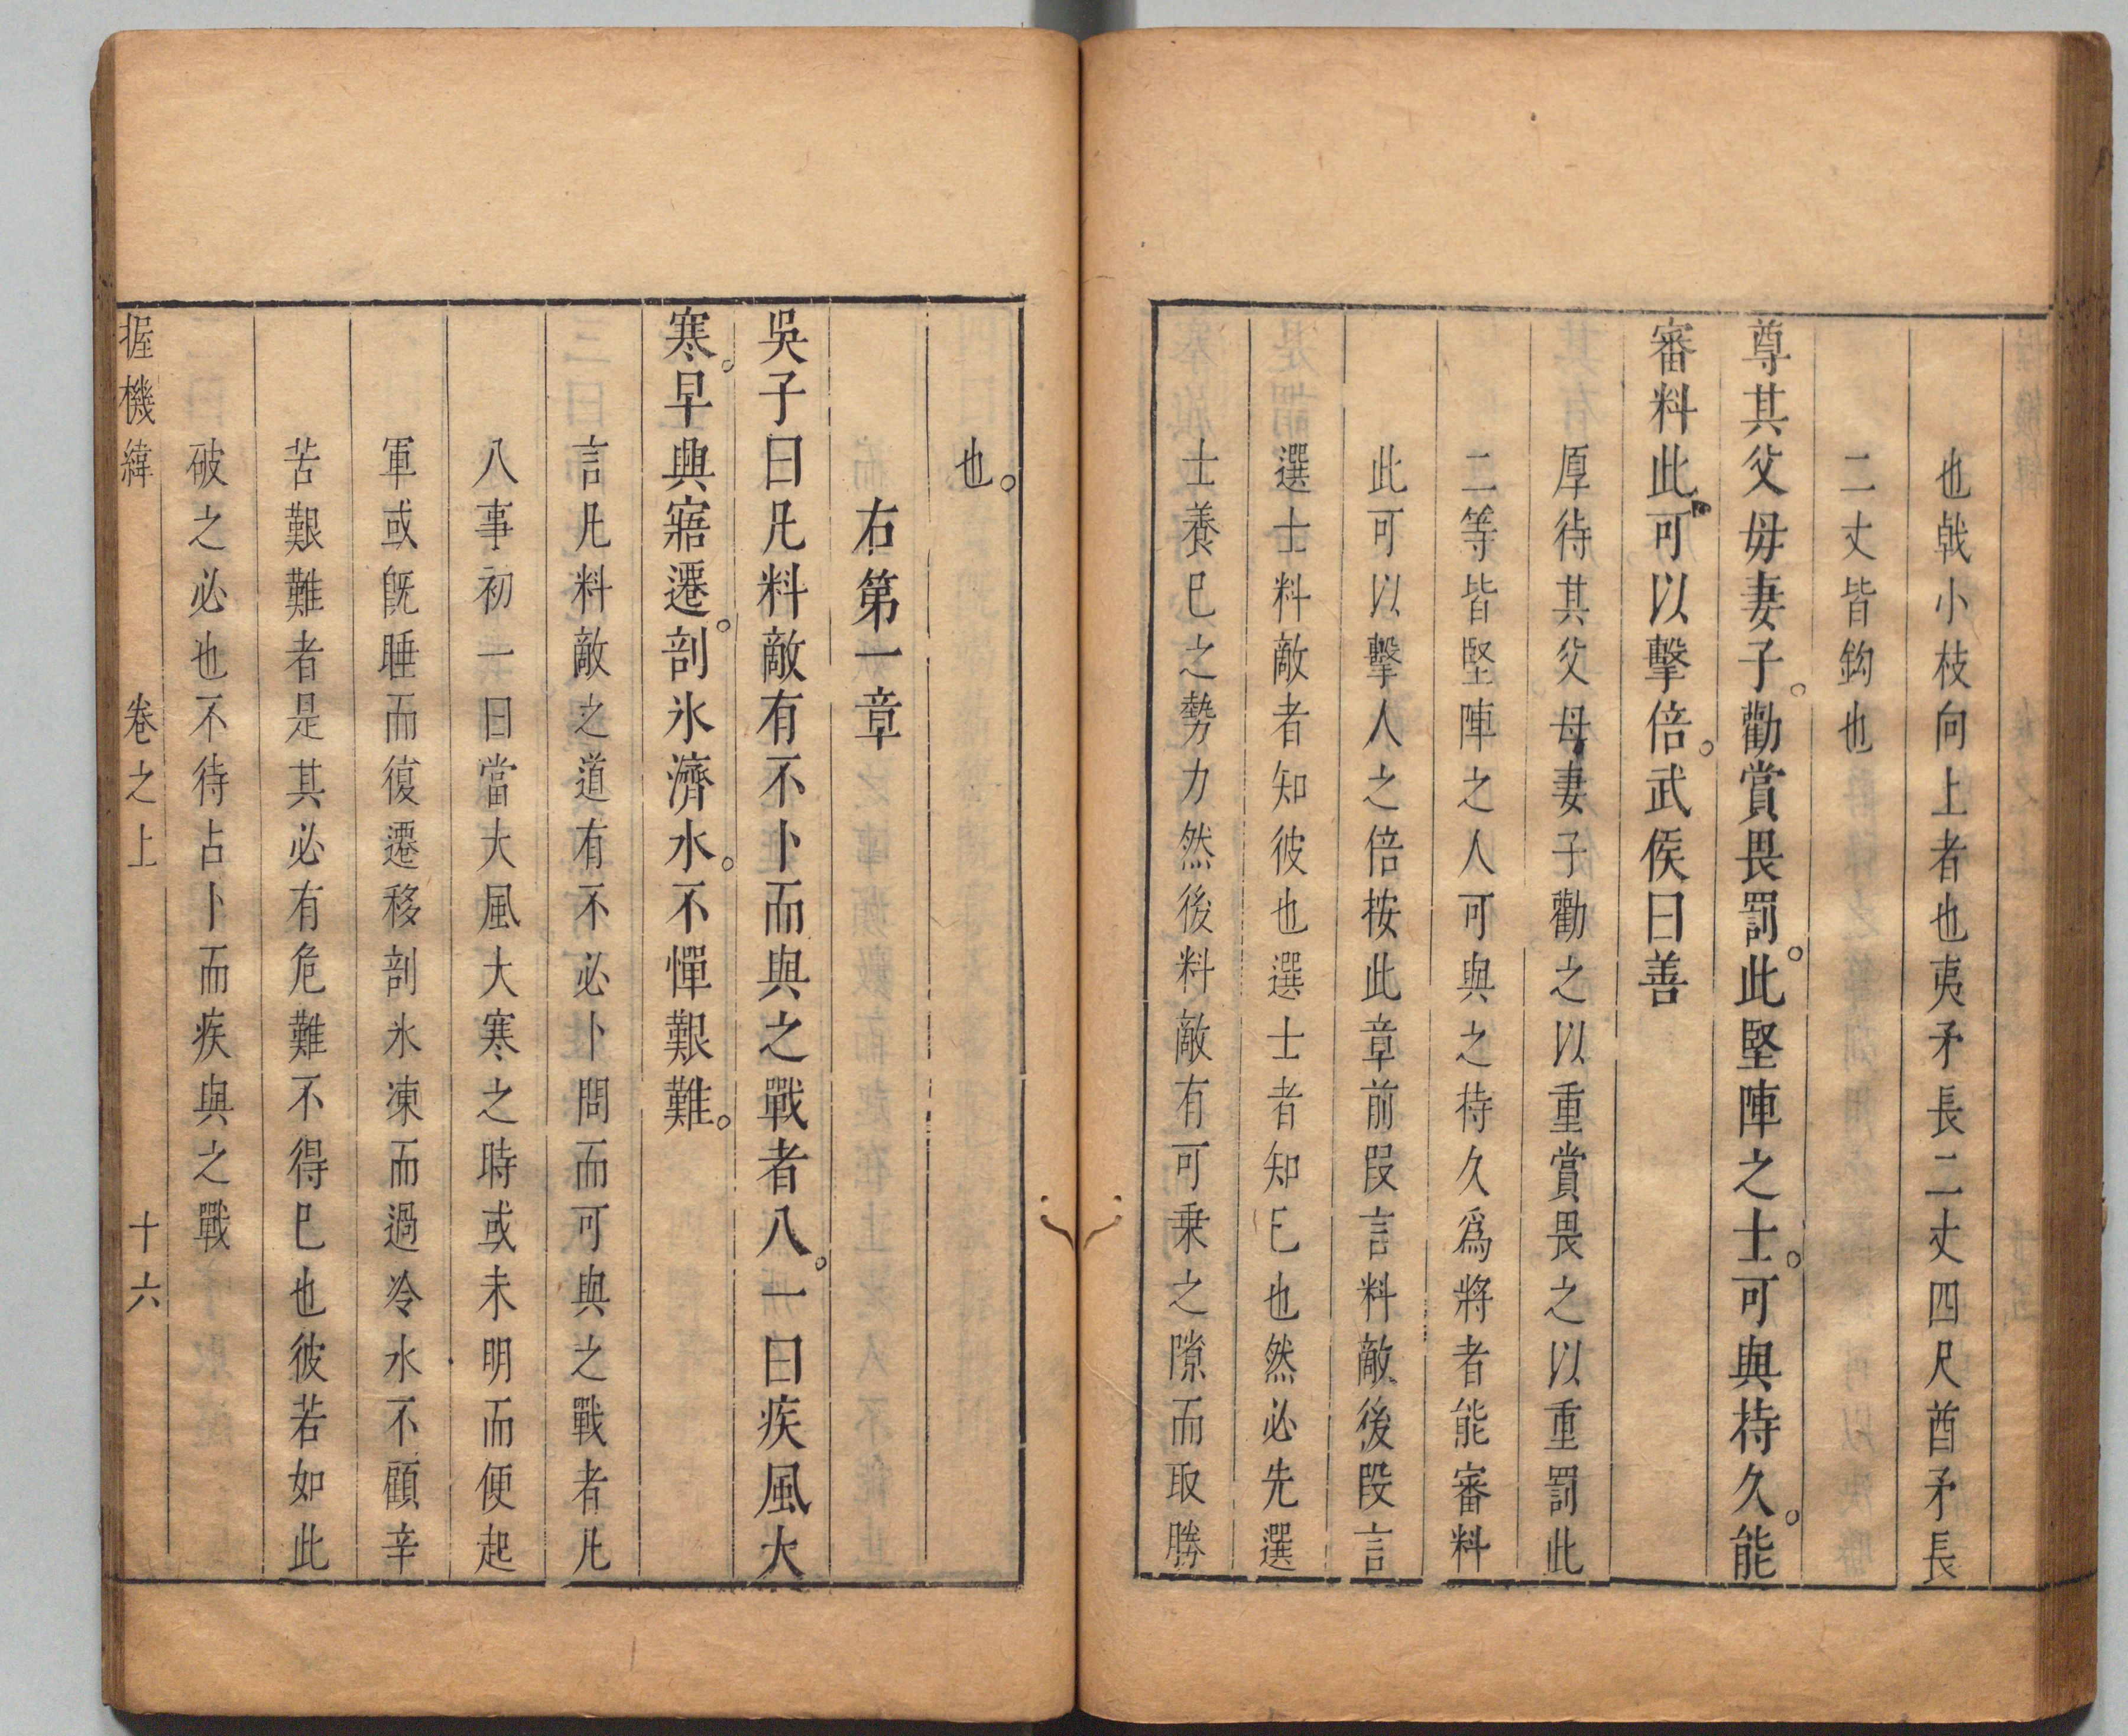 也戟小枝向上者也夷矛長二丈四尺酋矛長
二丈皆鈎也
尊其父母妻子。勸賞畏罰。此堅陣之士。可與持久。能
審料此可以擊倍。武侯曰善
厚待其父母妻子勸之以重賞畏之以重罰此
二等皆堅陣之人可與之持久爲將者能審料
此可以擊人之倍按此章前段言料敵後段言
選士料敵者知彼也選士者知已也然必先選
士養已之勢力然後料敵有可乗之隙而取勝
也。
右第一章
吳子曰凡料敵有不卜而與之戰者八。一曰疾風大
寒。早興寤遷。剖氷濟水。不憚艱難。
言凡料敵之道有不必卜問而可與之戰者凡
八事初一曰當大風大寒之時或未明而便起
軍或旣睡而復遷移剖氷凍而過冷水不顧辛
苦艱難者是其必有危難不得已也彼若如此
破之必也不待占卜而疾與之戰
握機緯 卷之上 十六